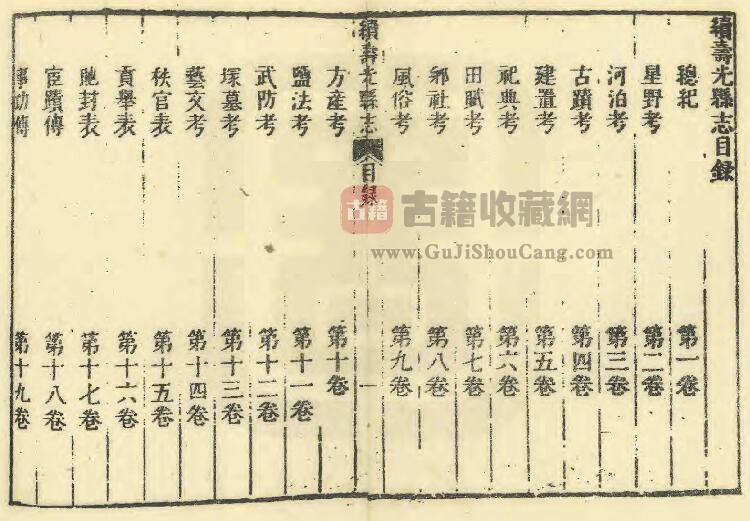 續壽光縣志目録
總紀 第一卷
星野考 第二卷
河泊考 第三卷
古蹟考 第四卷
建置考 第五卷
祀典考 第六卷
田賦考 第七卷
鄉社考 第八卷
風俗考 第九卷
續壽光縣志 目録 一
方産考 第十卷
鹽法考 第十一卷
武防考 第十二卷
塚墓考 第十三卷
藝文考 第十四卷
秩官表 第十五卷
貢舉表 第十六卷
貤封表 第十七卷
宦蹟傳 第十八卷
事功傳 第十九卷
古籍 古籍收藏網
www.GuJiShouCang.com